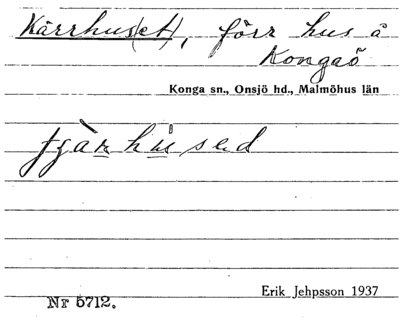 Kärrhus(et), förr hus å
Kongaö
Konga sn., Onsjö hd., Malmöhus län
tjärhúsed
Erik Jehpsson 1937
Nr 5712.